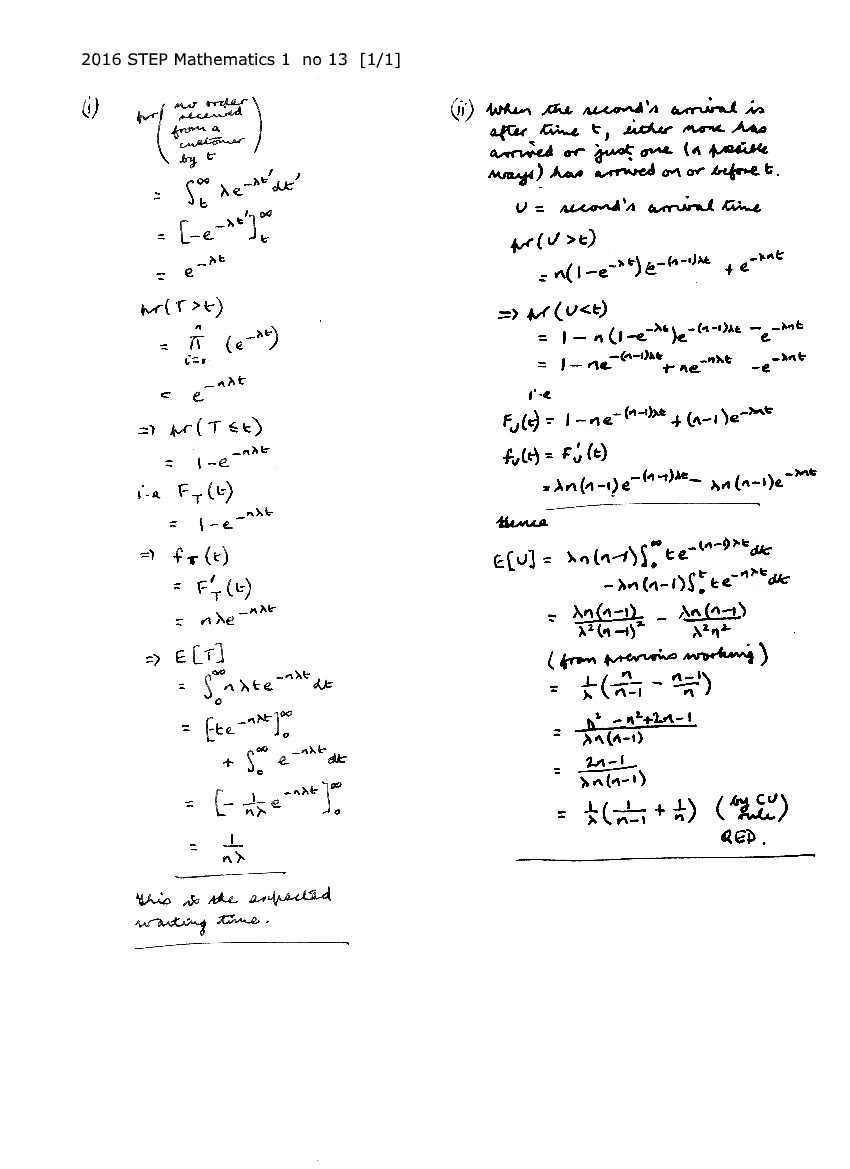 2016 STEP Mathematics 1 no 13 [1/1]
(i)
pr( no order
received
from a
customer
by t )
= ∫ₜ^∞ λe^{-λt'} dt'
= [-e^{-λt'}]ₜ^∞
= e^{-λt}
pr(T > t)
= ∏_{i=1}^{n} (e^{-λt})
= e^{-nλt}
⇒ pr(T ≤ t)
= 1-e^{-nλt}
i.e F_T(t)
= 1-e^{-nλt}
⇒ f_T(t)
= F'_T(t)
= nλe^{-nλt}
⇒ E[T]
= ∫₀^∞ nλte^{-nλt} dt
= [-te^{-nλt}]₀^∞
+ ∫₀^∞ e^{-nλt} dt
= [-1/(nλ) e^{-nλt}]₀^∞
= 1/(nλ)
This is the expected
waiting time.
(ii) When the second's arrival is
after time t, either none has
arrived or just one (n possible
ways) has arrived on or before t.
U = second's arrival time
pr(U > t)
= n(1-e^{-λt})e^{-(n-1)λt} + e^{-λnt}
⇒ pr(U < t)
= 1-n(1-e^{-λt})e^{-(n-1)λt} -e^{-λnt}
= 1-ne^{-(n-1)λt} + ne^{-nλt} -e^{-λnt}
i.e
F_U(t) = 1-ne^{-(n-1)λt} + (n-1)e^{-λnt}
f_U(t) = F'_U(t)
= λn(n-1)e^{-(n-1)λt} - λn(n-1)e^{-λnt}
Hence
E[U] = λn(n-1)∫₀^∞ te^{-(n-1)λt} dt
-λn(n-1)∫₀^t te^{-nλt} dt
= λn(n-1)/(λ²(n-1)²) - λn(n-1)/(λ²n²)
(from previous working)
= 1/λ (n/(n-1) - (n-1)/n)
= (n²-n²+2n-1)/(λn(n-1))
= (2n-1)/(λn(n-1))
= 1/λ (1/(n-1) + 1/n) (by CU rule)
QED.